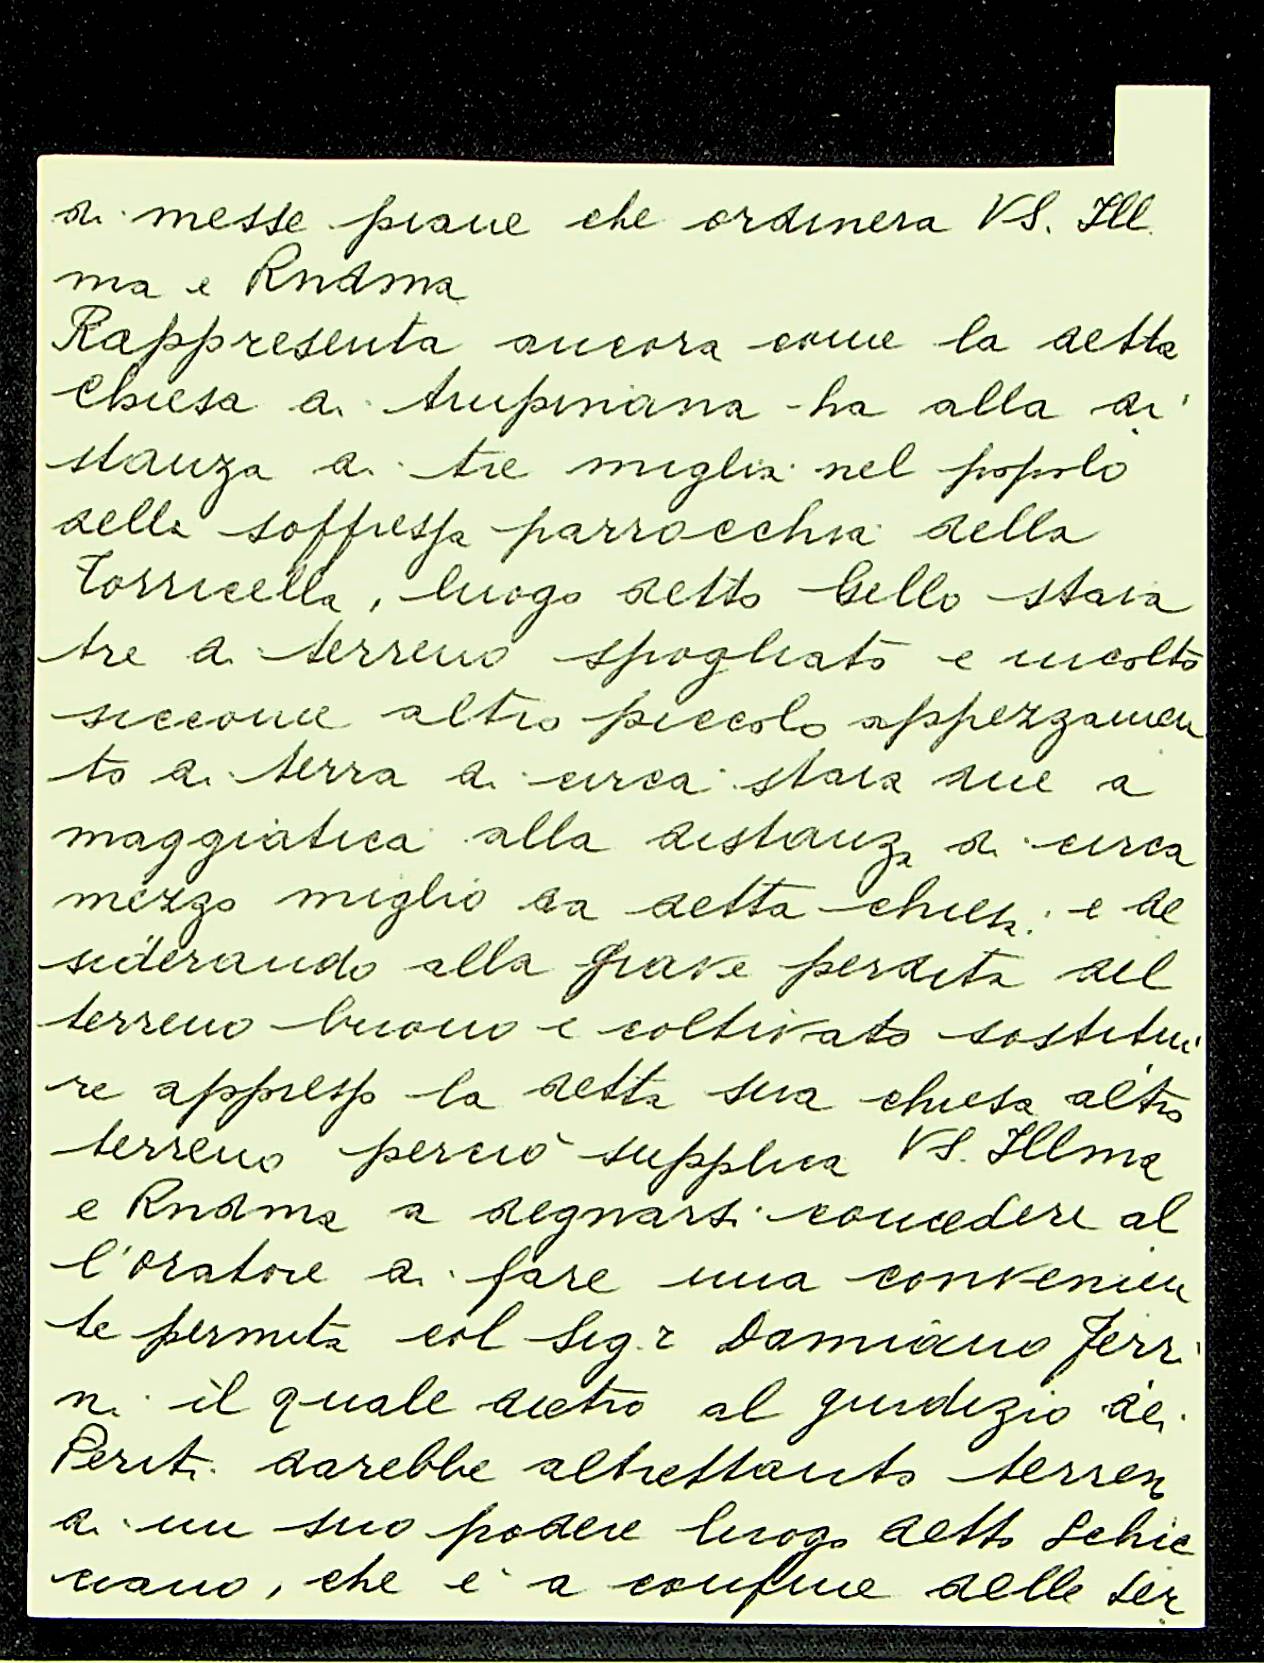 di messe piane che ordinera VS. Ill
ma e Rndma
Rappresenta ancora come la detta
Chiesa di Trupinana ha alla di
stanza di tre miglia nel popolo
della soppressa parrocchia della
Torricella, luogo detto Gello staia
tre di terreno spogliato e incolto
siccome altro piccolo appezzamen
to di terra di circa staia due a
maggiatica alla distanza di circa
mezzo miglio da detta chiesa e de
siderando alla grave perdita del
terreno buono e coltivato sostitui
re appresso la detta sua chiesa altro
terreno perciò supplica VS. Illma
e Rndma a degnarsi concedere al
l'oratore di fare una convenien
te permuta col Sig.r Damiano Ferri
ni il quale dietro al giudizio dei
Periti darebbe altrettanto terreno
di un suo podere luogo detto Schic
ciano, che è a confine delle ter